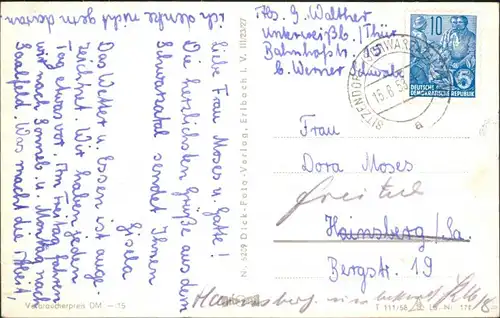 Abs. G. Walther
Unterweißb./Thür.
Bahnhofstr.
b. Werner Schwabe
10
5
DEUTSCHE
DEMOKRATISCHE REPUBLIK
SITZENDORF (SCHWARZA
15.8.58
a
Frau
Dora Moses
Freital
Hainsberg/Sa.
Bergstr. 19
Hainsberg
unbekannt
T 111/58
Verbraucherpreis DM -,15
N. 5209 Dick-Foto-Verlag, Erlbach i. V. III/23/27
Liebe Frau Moses u. Gatte!
Die herzlichsten Grüße aus dem
Schwarzatal sendet Ihnen
Gisela
Das Wetter u. Essen ist ausge-
zeichnet. Wir haben jeden
Tag etwas vor. Am Freitag fahren
wir nach Sonneb. u. Montag nach
Saalfeld. Was macht die Arbeit,
ich denke nicht gern daran